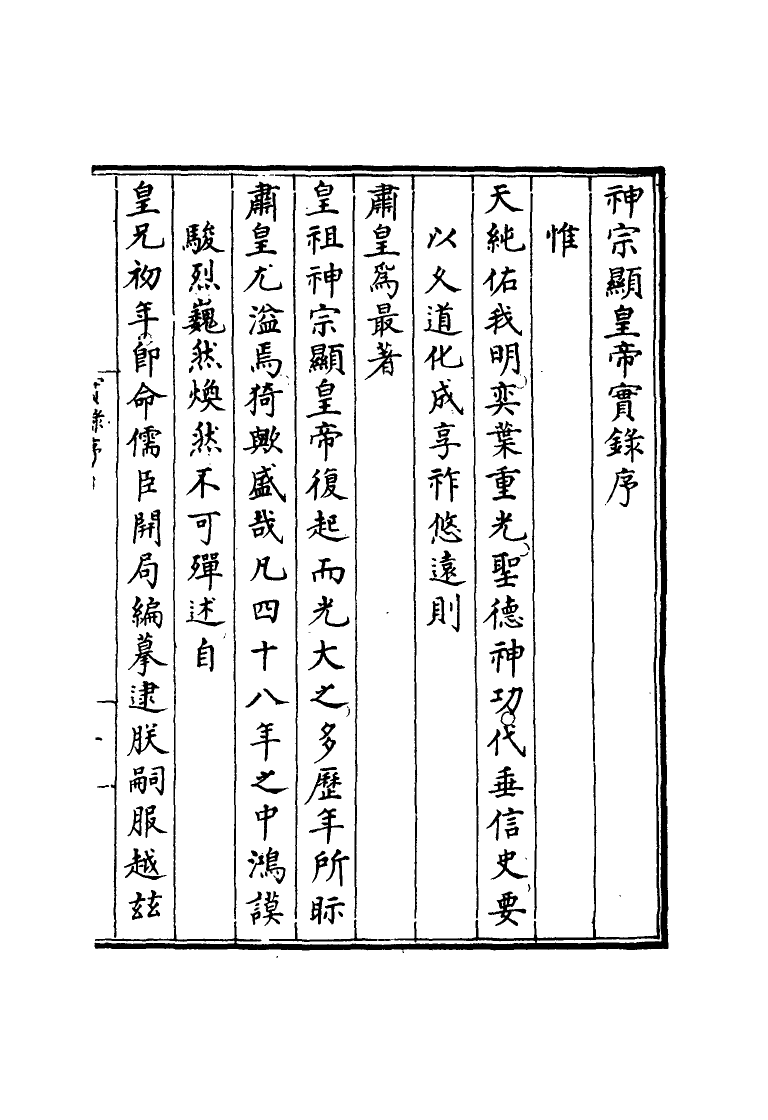 神宗顯皇帝實錄序
惟
天純佑我明奕葉重光聖德神功代垂信史要
以久道化成享祚悠遠則
肅皇爲最著
皇祖神宗顯皇帝復起而光大之多歷年所眎
肅皇尤溢焉猗歟盛哉凡四十八年之中鴻謨
駿烈巍然煥然不可殫述自
皇兄初年卽命儒臣開局編摹逮朕嗣服越玆
錄序